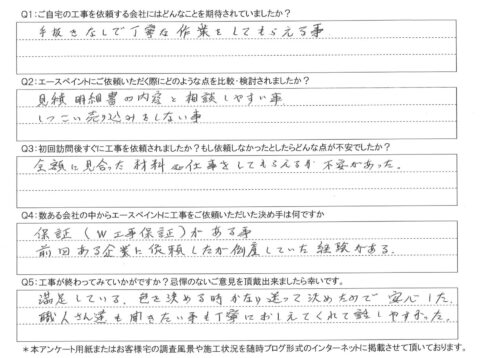 Q1:ご自宅の工事を依頼する会社にはどんなことを期待されていましたか?
手抜きなしで丁寧な作業をしてもらえる事
Q2:エースペイントにご依頼いただく際にどのような点を比較・検討されましたか?
見積明細書の内容と相談しやすい事
しつこい売り込みをしない事
Q3:初回訪問後すぐに工事を依頼されましたか?もし依頼しなかったとしたらどんな点が不安でしたか?
金額に見合った材料や仕事をしてもらえるか不安があった.
Q4:数ある会社の中からエースペイントに工事をご依頼いただいた決め手は何ですか
保証(W工事保証)がある事
前回ある企業に依頼したが倒産していた経験がある.
Q5:工事が終わってみていかがですか?忌憚のないご意見を頂戴出来ましたら幸いです。
満足している.色を決める時かなり迷って決めたので安心した.
職人さん達も聞きたい事も丁寧におしえてくれて話しやすかった.
*本アンケート用紙またはお客様宅の調査風景や施工状況を随時ブログ形式のインターネットに掲載させて頂いております。